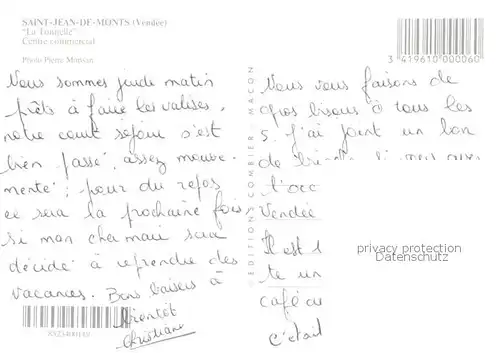 SAINT-JEAN-DE-MONTS (Vendée)
"La Tourelle"
Centre commercial
Photo Pierre
3 419610 000060
Nous sommes jeudi matin
prêts à faire les valises,
notre court séjour s'est
bien passé, assez mouve-
menté ; pour du repos
ce sera la prochaine fois,
si mon cher mari sera
décidé à reprendre des
vacances. Bons baisers à
bientôt
Christiane
© EDITIONS COMBIER MACON
Nous vous faisons de
gros bisous à tous les
5. J'ai joint un bon
de
l'occ
Vendée
Il est
te un
café au
c'était
privacy protection
Datenschutz